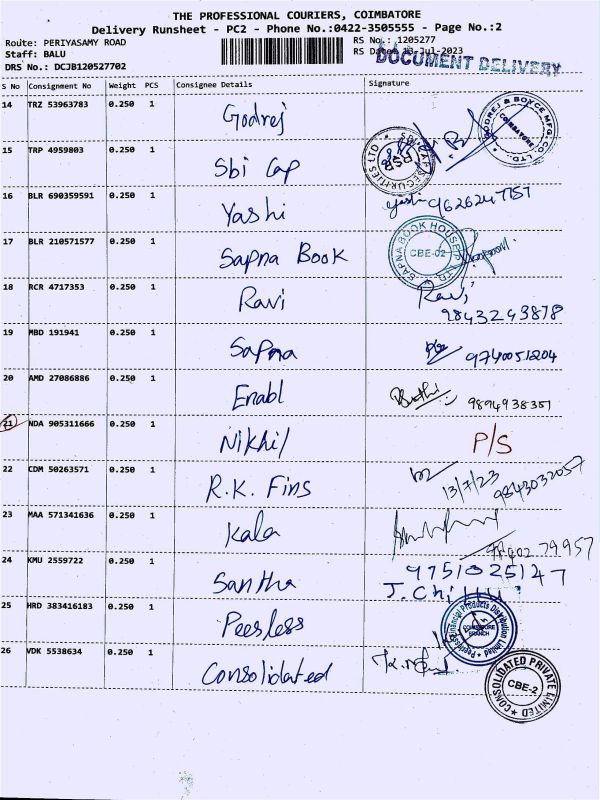 THE PROFESSIONAL COURIERS, COIMBATORE
Delivery Runsheet - PC2 - Phone No.:0422-3505555 - Page No.:2
Route: PERIYASAMY ROAD
Staff: BALU
DRS No.: DCJB120527702
RS No.: 1205277
RS Date: 13-Jul-2023
DOCUMENT DELIVERY
S No Consignment No Weight PCS Consignee Details Signature
14 TRZ 53963783 0.250 1 Godrej
GODREJ & BOYCE MFG. CO. LTD. COIMBATORE
15 TRP 4959803 0.250 1 Sbi Cap
SBI CAP SECURITIES LTD
16 BLR 690359591 0.250 1 Yashi
17 BLR 210571577 0.250 1 Sapna Book
SAPNA BOOK HOUSE CBE-02
18 RCR 4717353 0.250 1 Ravi Ravi
9843243878
19 MBD 191941 0.250 1 Sapna 9740051204
20 AMD 27086886 0.250 1 Enabl 9894938351
21 NDA 905311666 0.250 1 Nikhil P/S
22 CDM 50263571 0.250 1 R.K. Fins 13/7/23 9843032057
23 MAA 571341636 0.250 1 Kala
24 KMU 2559722 0.250 1 Santha 9751025147
25 HRD 383416183 0.250 1 Peerless
Peerless Financial Products Distribution Limited COIMBATORE BRANCH
26 VDK 5538634 0.250 1 Consolidated
CONSOLIDATED PRIVATE LIMITED CBE-2